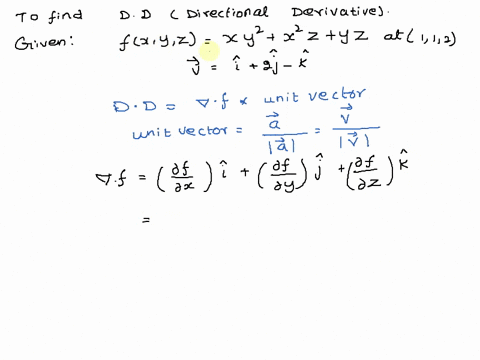 To find D.D (Directional Derivative).
Given: f(x,y,z) = xy² + x²z + yz at (1,1,2)
v⃗ = î + 2ĵ - k̂
D.D = ∇.f * unit vector
unit vector = a⃗/|a⃗| = v⃗/|v⃗|
∇.f = (∂f/∂x) î + (∂f/∂y) ĵ + (∂f/∂z) k̂
=